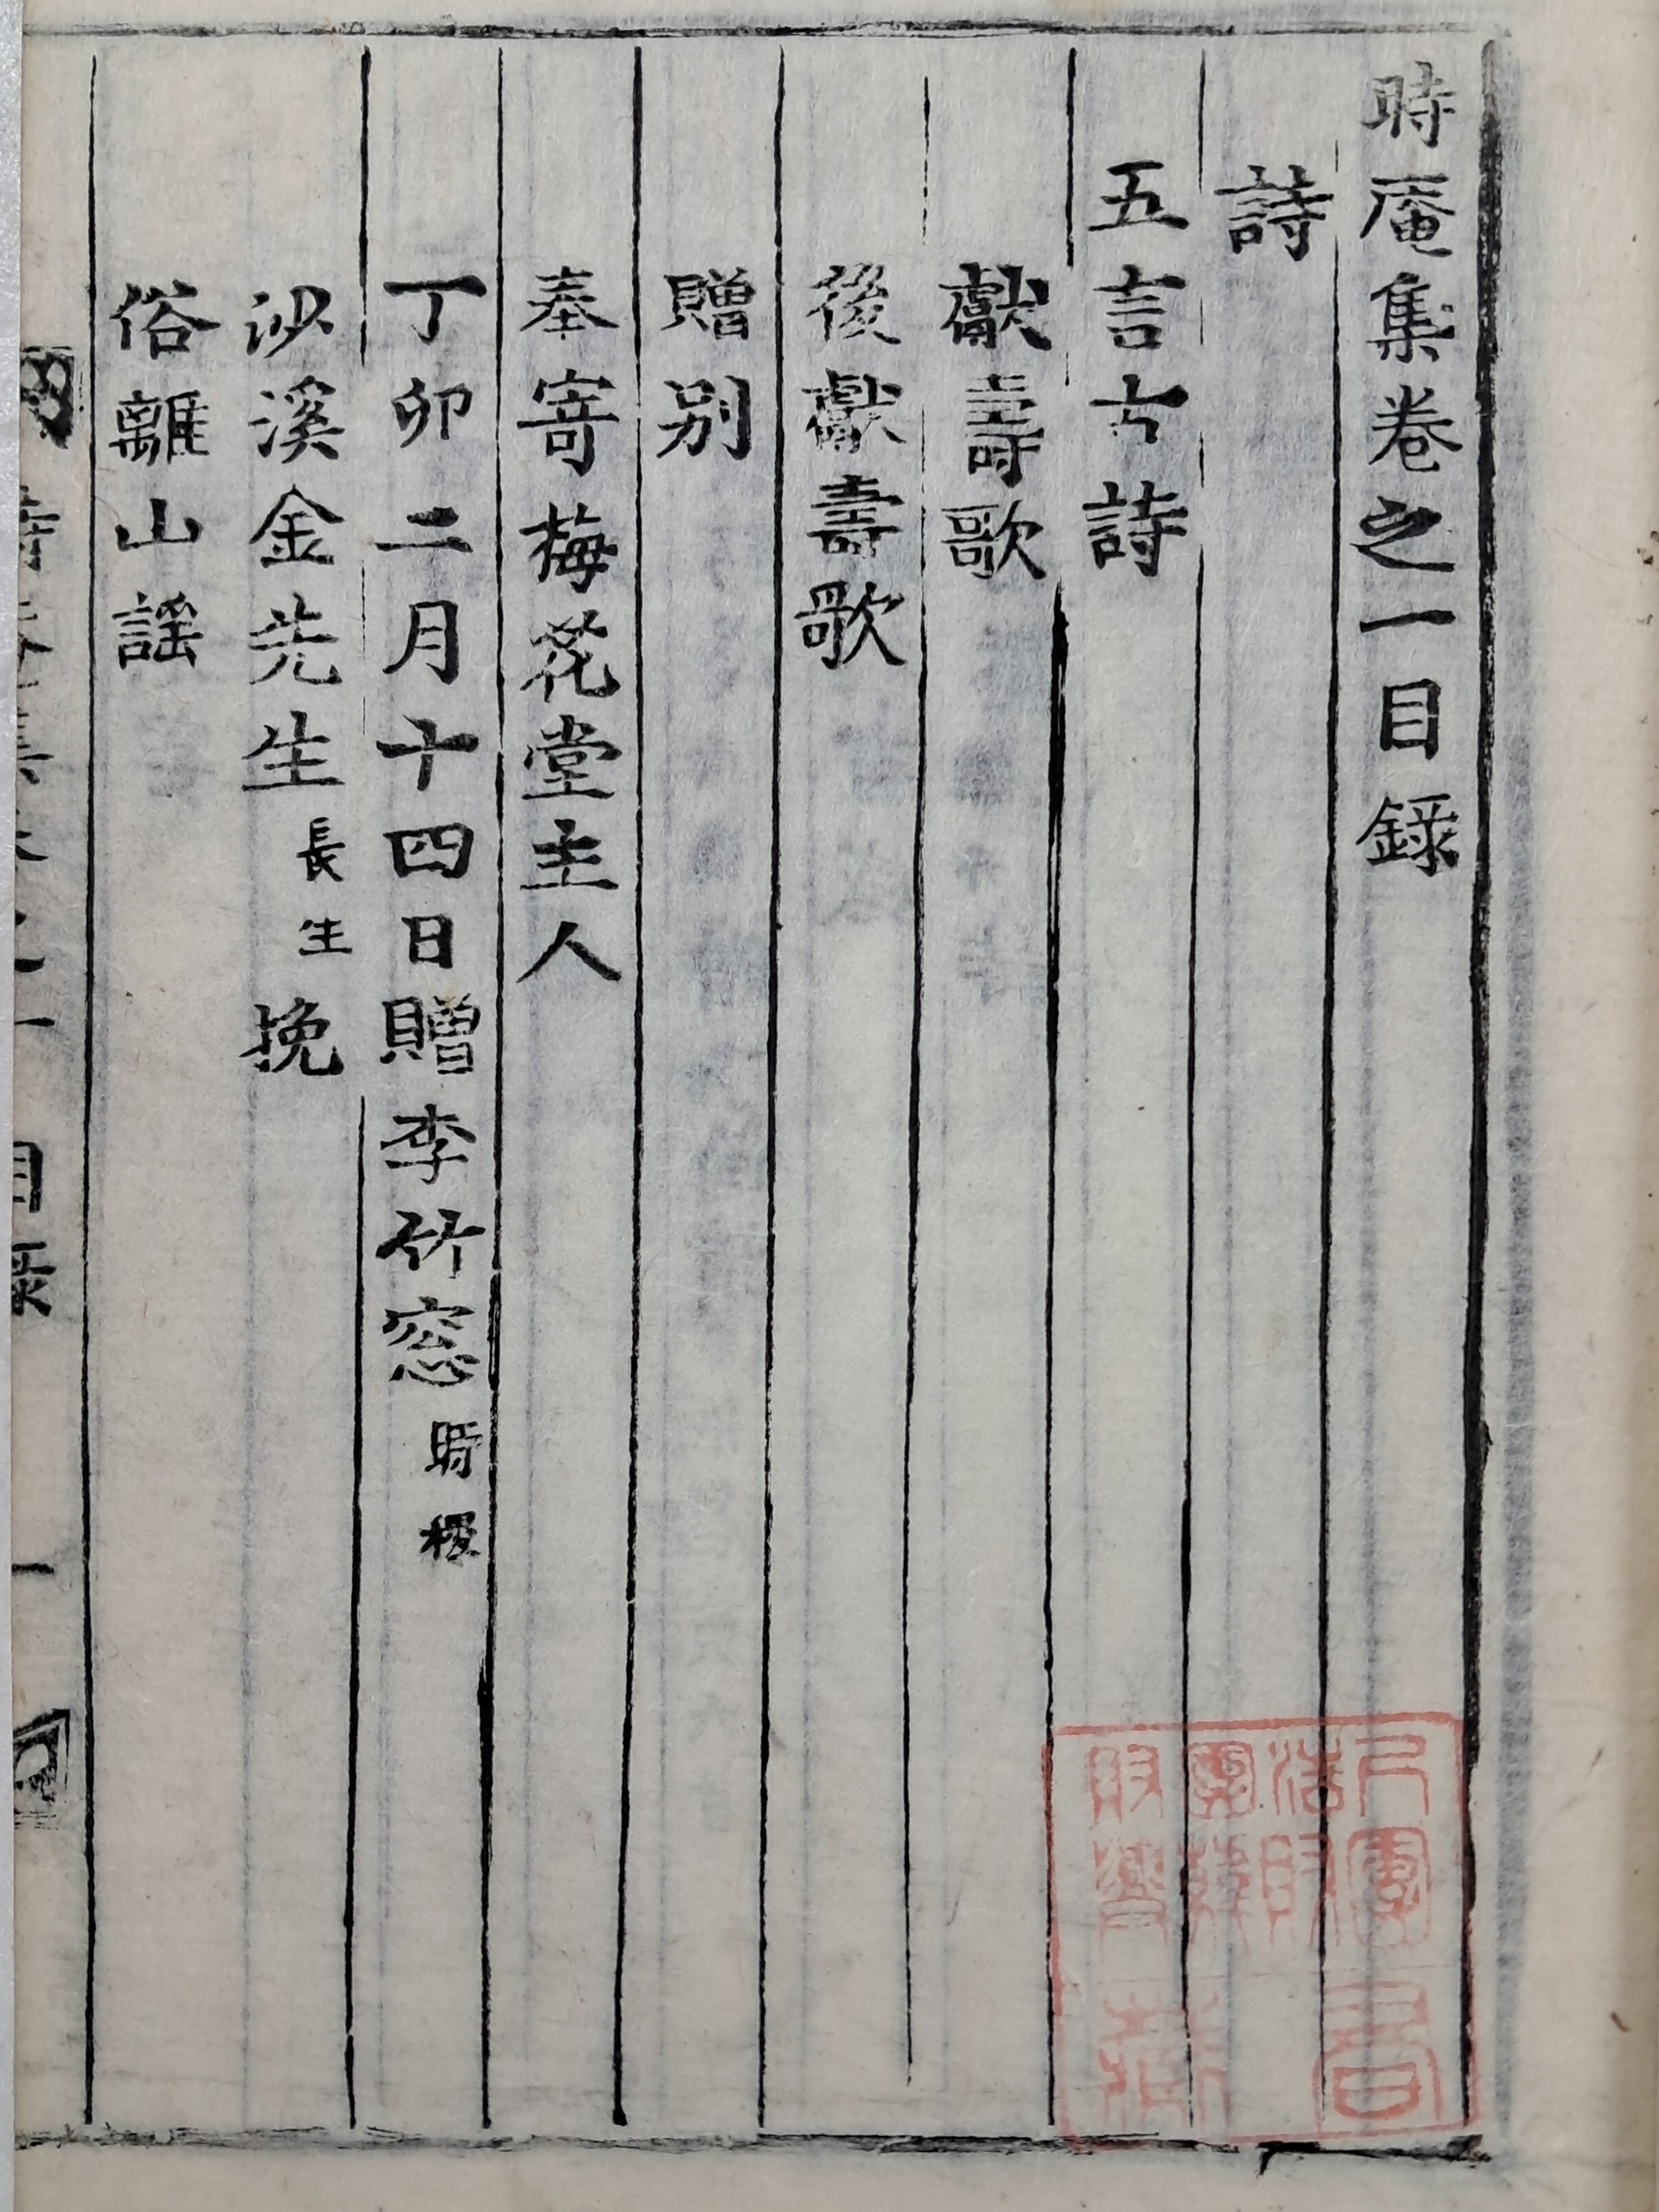 時庵集卷之一目錄
詩
五言古詩
獻壽歌
後獻壽歌
贈別
奉寄梅花堂主人
丁卯二月十四日贈李竹窓時稷
沙溪金先生長生挽
俗離山謠